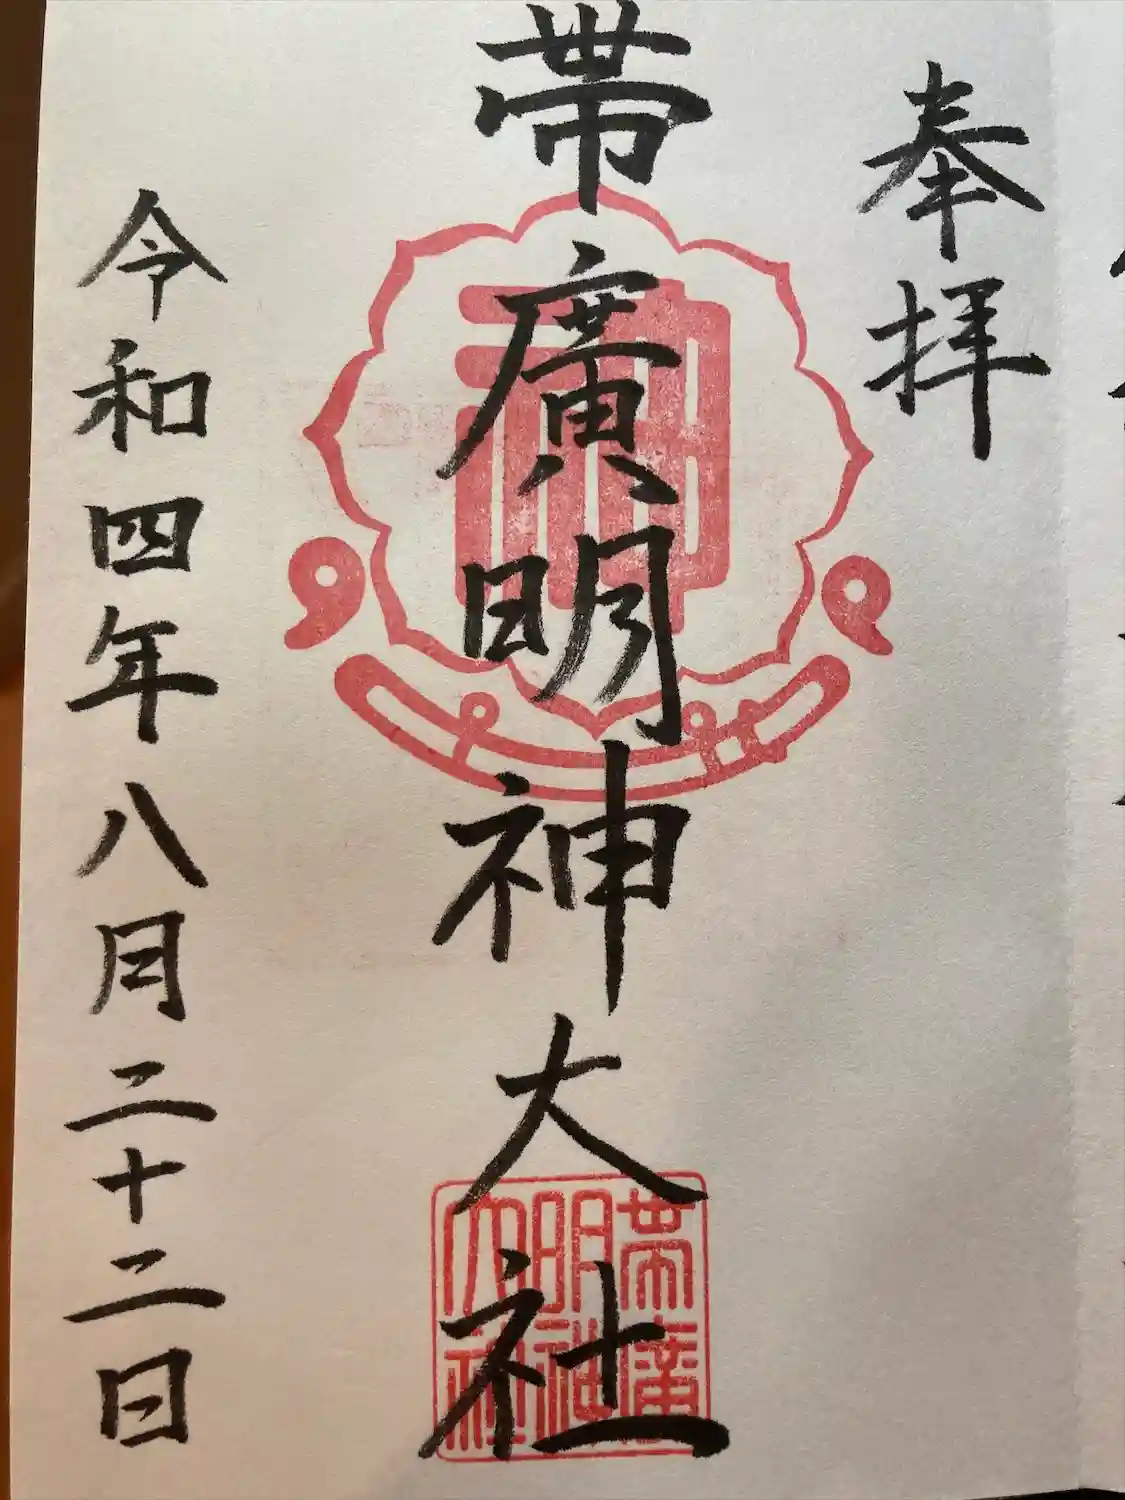 奉拝
帯廣明神大社
令和四年八月二十二日
神
帯廣
明神
大社